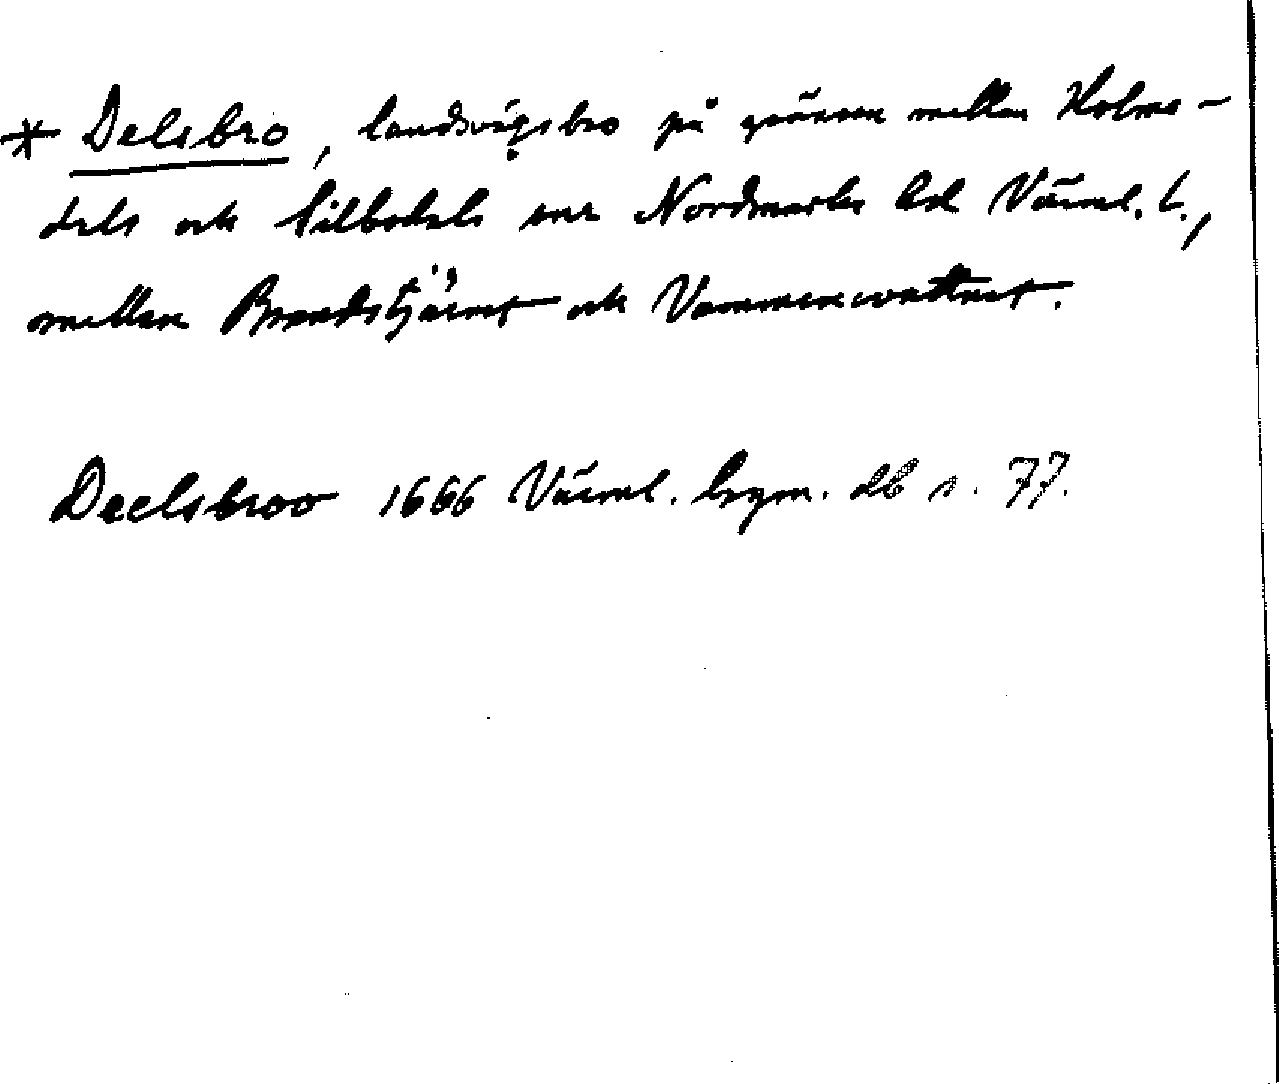 * Delsbro, landsvägsbro på gränsen mellan Holme-
dals och Silbodals snr Nordmarks hd Värml. l.,
mellan Brandstjärnet och Vammenvattnet.
Deelsbroo 1666 Värml. bgm. db s. 77.